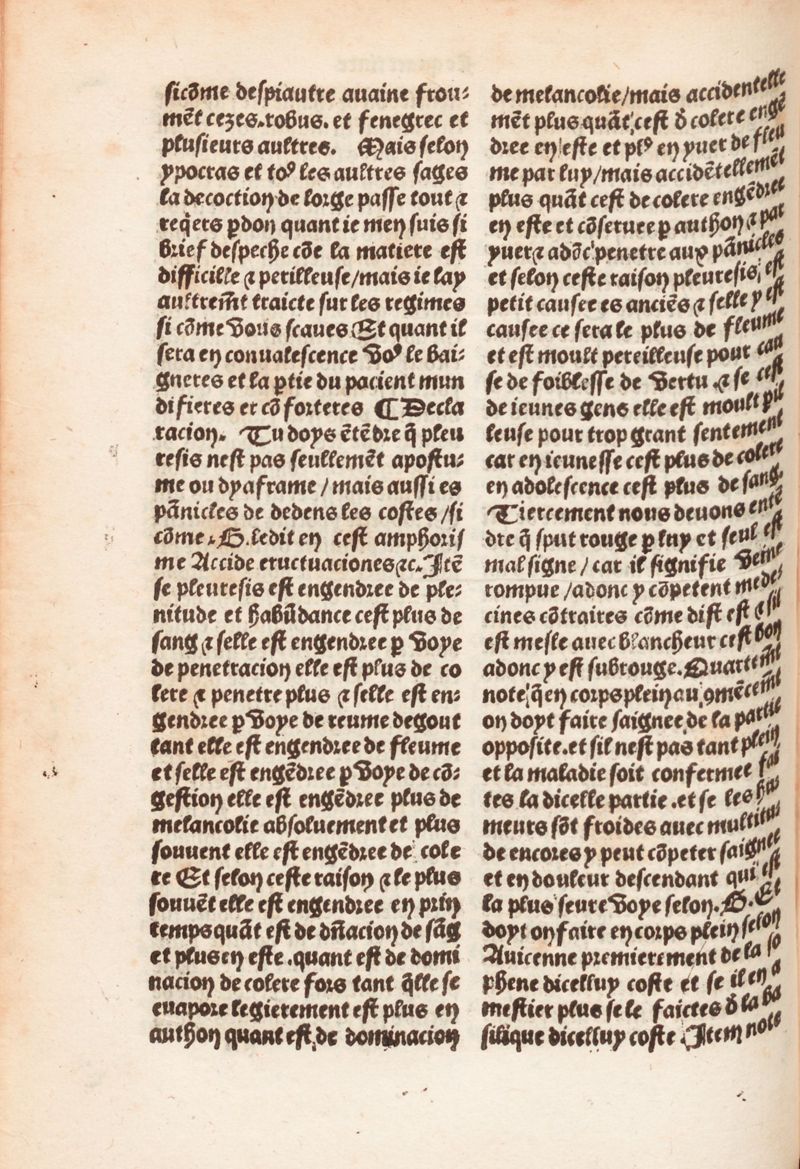 sicōme despiautre auaine frou⸗
mēt cezes.robus. et fenegrec et
plusieurs aultres. Mais selon
ypocras et toꝰ les aultres sages
la decoction de lorge passe tout ⁊
reqers pdon quant ie men suis si
brief despeche cōe la matiere est
difficille ⁊ perilleuse/mais ie lay
aultremēt traicte sur les regimes
si cōme vous scaues Et quant il
sera en conualescence voꝰ le bai⸗
gneres et la ꝑtie du pacient mun
difieres et cōforteres ¶ Decla
racion. Tu doys ētēdre q̄ pleu
resis nest pas seullemēt apostu⸗
me ou dyaframe / mais aussi es
pānicles de dedens les costes /si
cōme .G. ledit en cest amphoris
me Accide eructuaciones⁊c. Itē
se pleuresis est engendree de ple⸗
nitude et habūdance cest plus de
sang ⁊ selle est engendree ꝑ voye
de penetracion elle est plus de co
lere ⁊ penetre plus ⁊ selle est en⸗
gendree ꝑ voye de reume degout
tant elle est engendree de fleume
et selle est engēdree ꝑ voye de cō⸗
gestion elle est engēdree plus de
melancolie absoluement et plus
souuent elle est engēdree de cole
re Et selon ceste raison ⁊ le plus
souuēt elle est engendree en prin
temps quāt est de dn̄acion de sāg
et plus en este .quant est de domi
nacion de colere fors tant q̄lle se
euapore legierement est plus en
authon quant est de dominacion
de melancolie/mais accidentelle
mēt plus quāt cest d̄ colere enge
dree en este et plꝰ en yuer de fleu
me par luy/mais accidētellemēt
plus quāt cest de colere engēdree
en este et cōseruee ꝑ authon ⁊ par
yuer⁊ adōc penetre aux pānicles
et selon ceste raison pleuresis est
petit causee es anciēs ⁊ selle y est
causee ce sera le plus de fleume
et est moult pereilleuse pour cau
se de foiblesse de vertu ⁊ se cest
de ieunes gens elle est moult pil
leuse pour trop grant sentement
car en ieunesse cest plus de colere
en adolescence cest plus de sang.
Tiercement nous deuons entē
dre q̄ sput rouge ꝑ luy et seul est
mal signe / car il signifie veine
rompue /adonc y cōpetent mede⸗
cines cōtraires cōme dist est ⁊ sil
est mesle auec blancheur cest bon
adonc y est subrouge. Quartemt
note q̄ en corps plein au ꝯmēcemt
on doyt faire saignee de la partie
opposite.et sil nest pas tant plein
et la maladie soit confermee fai
tes la dicelle partie .et se les hu
meurs sōt froides auec multitu
de encores y peut cōpeter saignee
et en douleur descendant qui est
la plus seure voye selon .G. Et
doyt on faire en corps plein selon
Auicenne premierement de la so
phene dicelluy coste et se il en a
mestier plus se le faictes d̄ la ba
silique dicelluy coste Item note